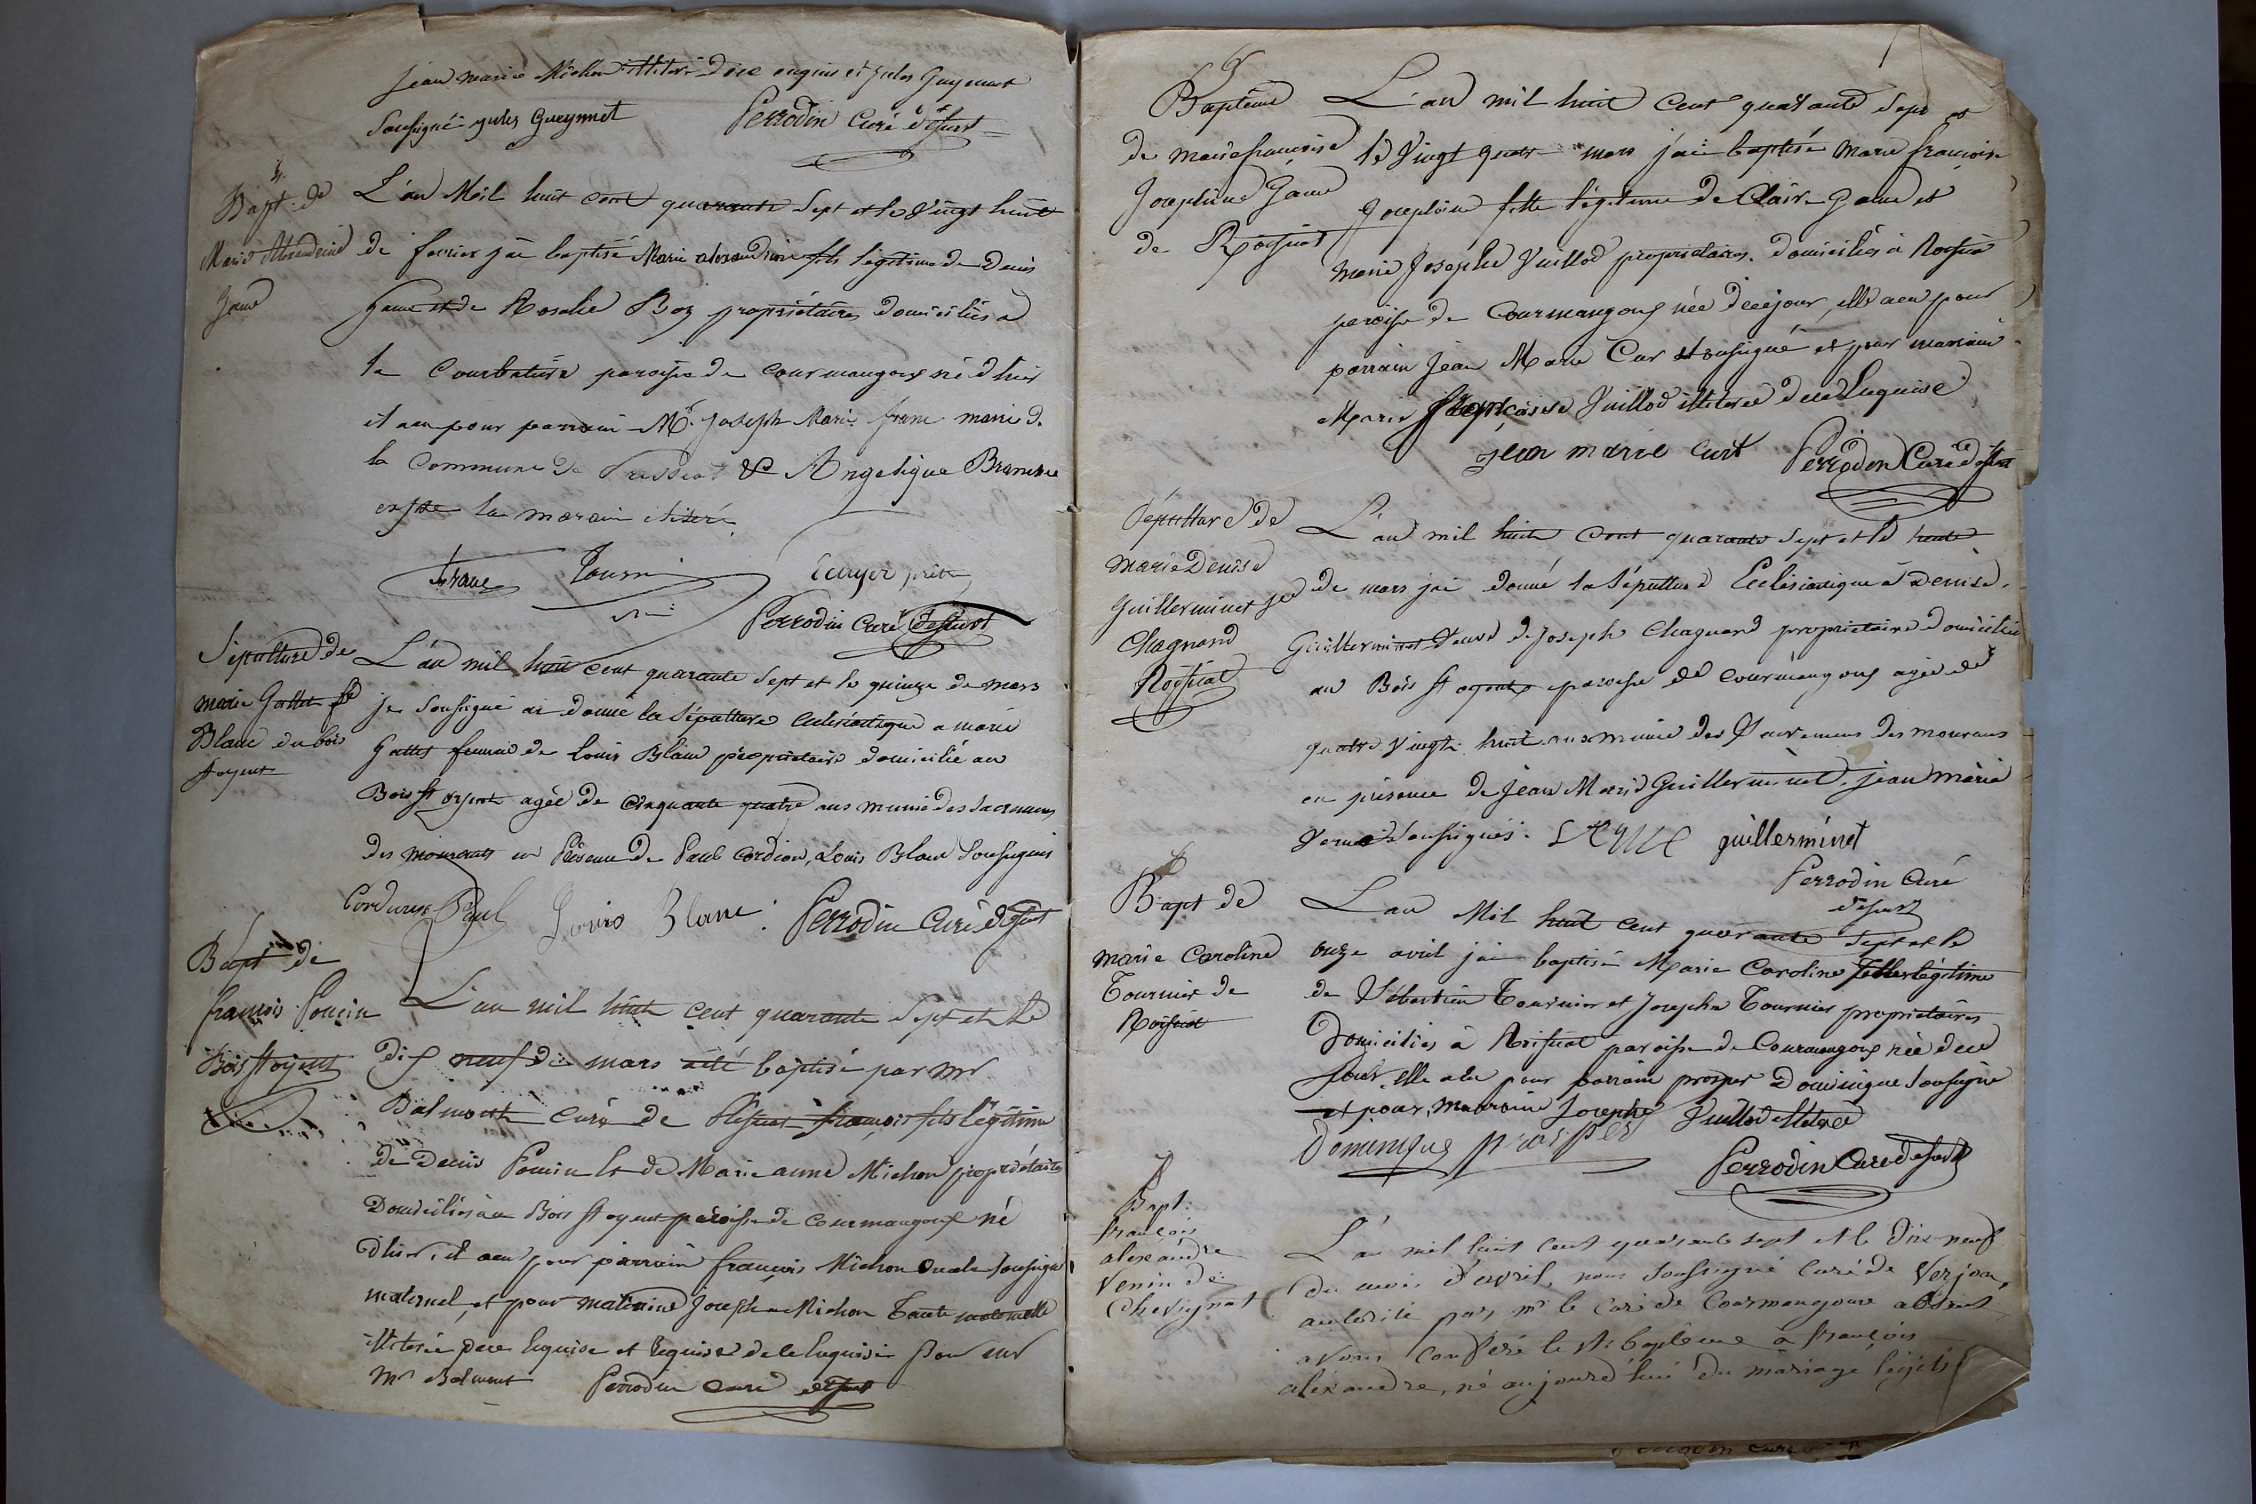 Jean marie Michon illiteré dece enquis et jules Gueynet
Soussigné jules Gueynnet Perrodin Curé desservt
Bapt. de
Marie Alexandrine
Game
L'an Mil huit cent quarante Sept et le Vingt huit
de fevrier jai baptisé Marie alexandrine fils légitime de Denis
Game et de Rosalie Boz propriétaires domiciliés à
la Courbatière paroisse de Courmangoux né d'hier
il a eu pour parrain Mr. Joseph Marie franc maire de
la Commune de Pressiat & Angelique
la maraine
franc
Perrodin Curé desservt
Sépulture de
marie Gottet fe
Blanc du bois
styent
L'an mil huit cent quarante Sept et le quinze de mars
je Soussigné ai donné la Sépulture Eclésiastique a marie
Gottet femme de Louis Blanc propriétaire domicilié au
Bois St oyent agée de cinquante quatre ans munie des Sacremens
des mourants en Présence de Paul Cordion, Louis Blanc Soussignés
Paul Louis Blanc. Perrodin Curé desservt
Bapt de
francois Poncin
Bois st oyent
L'an mil huit cent quarante Sept et le
dix neuf de mars a été baptisé par mr
Balmont curé de Pressiat francois fils légitime
de Denis Poncin et de Marie anne Michon propriétaires
Domiciliés au Bois st oyent paroisse de Courmangoux né
d'hier, il a eu pour parrain françois Michon oncle Soussigné
maternel, et pour maraine Joseph Michon Tante maternelle
illiterée dece Enquise et Requise de le Enquise Pour
Mr Balmont Perrodin curé desservt
Baptême
de marie francoise
Josephine Game
de Roissiat
L'an mil huit Cent quarante Sept et
le Vingt quatre mars jai baptisé Marie françoise
Josephine fille légitime de Clair Game et
Marie Josephe Vuillod propriétaires domiciliés à Roissiat
paroisse de Courmangoux née de ce jour, elle a eu pour
parrain Jean Marie Cur Soussigné et pour marraine
Marie françoise Vuillod illiterée dece Enquise.
jean marie curt Perrodin Curé desservt
Sépulture de
Marie Denise
Guilleminet
Chagnard
Roissiat
L'an mil huit Cent quarante Sept et le trente
de mars jai donné la Sépulture Eclésiastique à Denise
Guillerminet Veuve de Joseph Chagnard propriétaire domicilié
au Bois st oyent paroisse de Courmangoux agée de
quatre Vingt huit ans munie des Sacremens des mourans
en présence de Jean Marie Guillerminet, jean marie
Soussignés. guillerminet
Perrodin Curé
desservt
Bapt de
Marie Caroline
Tournier de
Roissiat
L'an Mil huit Cent quarante Sept et le
onze avril jai baptisé Marie Caroline fille légitime
de Sébastien Tournier et Josephe Tournier propriétaires
Domiciliés à Roissiat paroisse de Courmangoux née de ce
jour, elle a eu pour parrain prosper Dominique Soussigné
et pour Marraine Josephe Vuillod illiterée
Dominique prosper
Perrodin Curé desservt
Bapt.
françois
alexandre
Venin de
Chevignat
L'an mil huit cent quarante sept et le dix-neuf
du mois d'avril, nous soussigné curé de Verjon,
autorisé par mr le curé de Courmangoux absent
avons conféré le St baptême à françois
alexandre, né aujourd'hui du mariage légiti